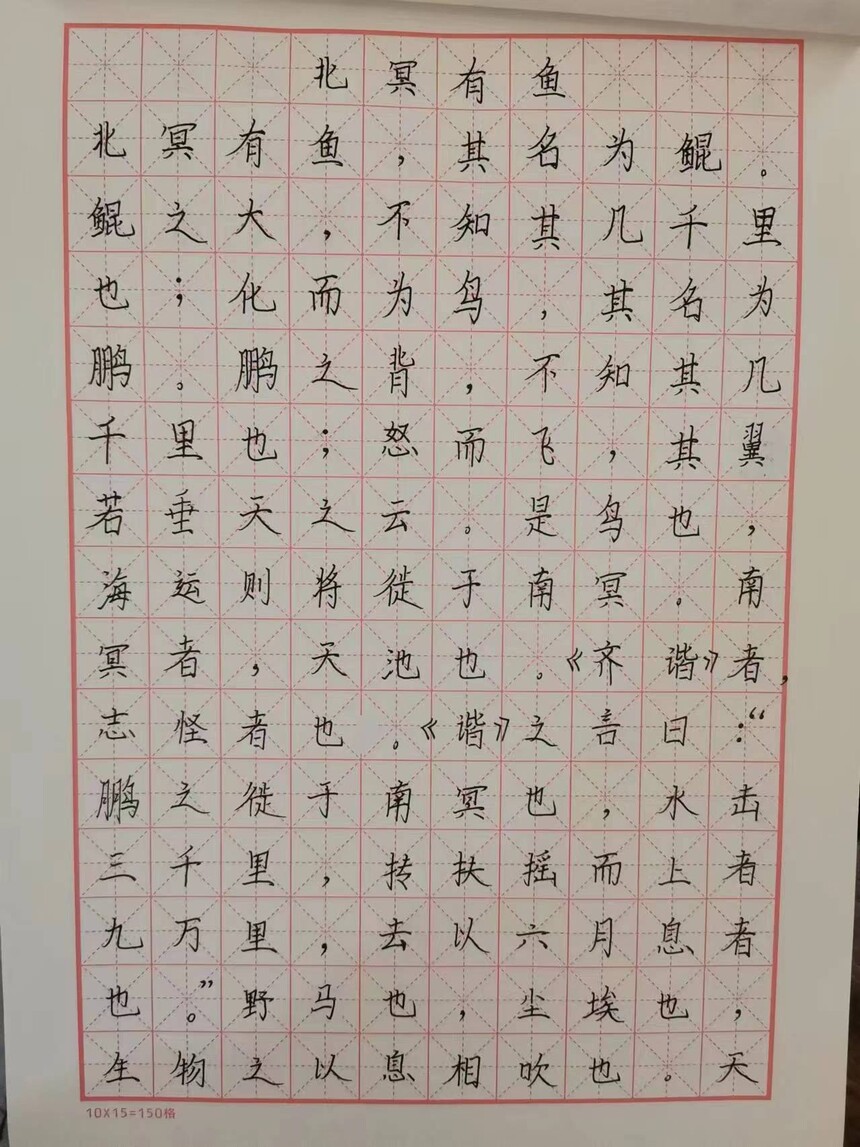 北冥有鱼
北冥有鱼，其名为鲲。
鲲之大，不知其几千里
也；化而为鸟，其名为
鹏。鹏之背，不知其几
千里也；怒而飞，其翼
若垂天之云。是鸟也，
海运则将徙于南冥。南
冥者，天池也。《齐谐》者，
志怪者也。《谐》之言曰：“
鹏之徙于南冥也，水击
三千里，抟扶摇而上者
九万里，去以六月息者
也。”野马也，尘埃也，
生物之以息相吹也。天
10X15=150格